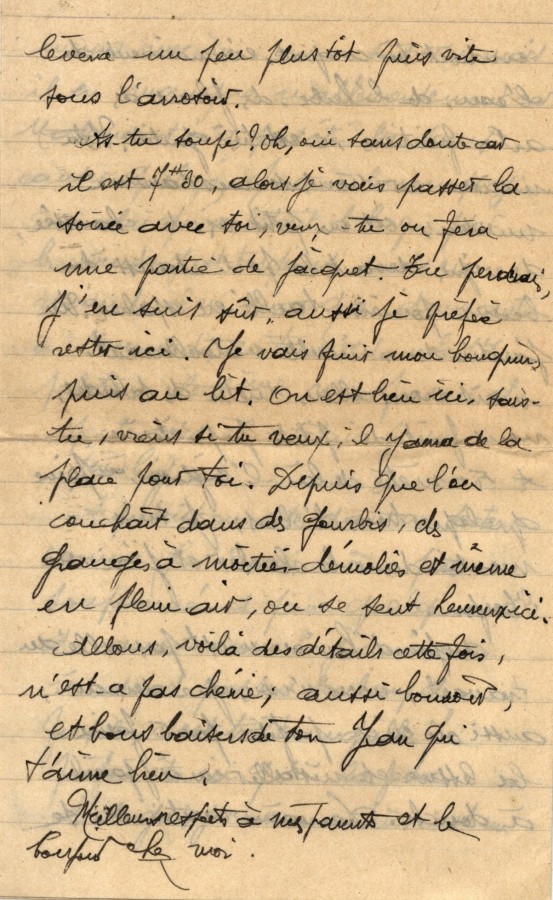 lèvera un peu plus tôt puis vite
sous l'arrosoir.
As-tu soupé? Oh, oui sans doute car
il est 7H30, alors je vais passer la
soirée avec toi, veux-tu on fera
une partie de jacquet. Tu perdrais,
j'en suis sûr, aussi je préfère
rester ici. Je vais finir mon bouquin
puis au lit. On est bien ici, sais-
tu, viens si tu veux, il y aura de la
place pour toi. Depuis que l'on
couchait dans des gourbis, des
granges à moitiés démolies et même
en plein air, on se sent heureux ici.
Allons, voilà des détails cette fois,
n'est-ce pas chérie; aussi bonsoir,
et bons baisers de ton Jean qui
t'aime bien.
Meilleurs respects à mes parents et le
bonjour chez moi.